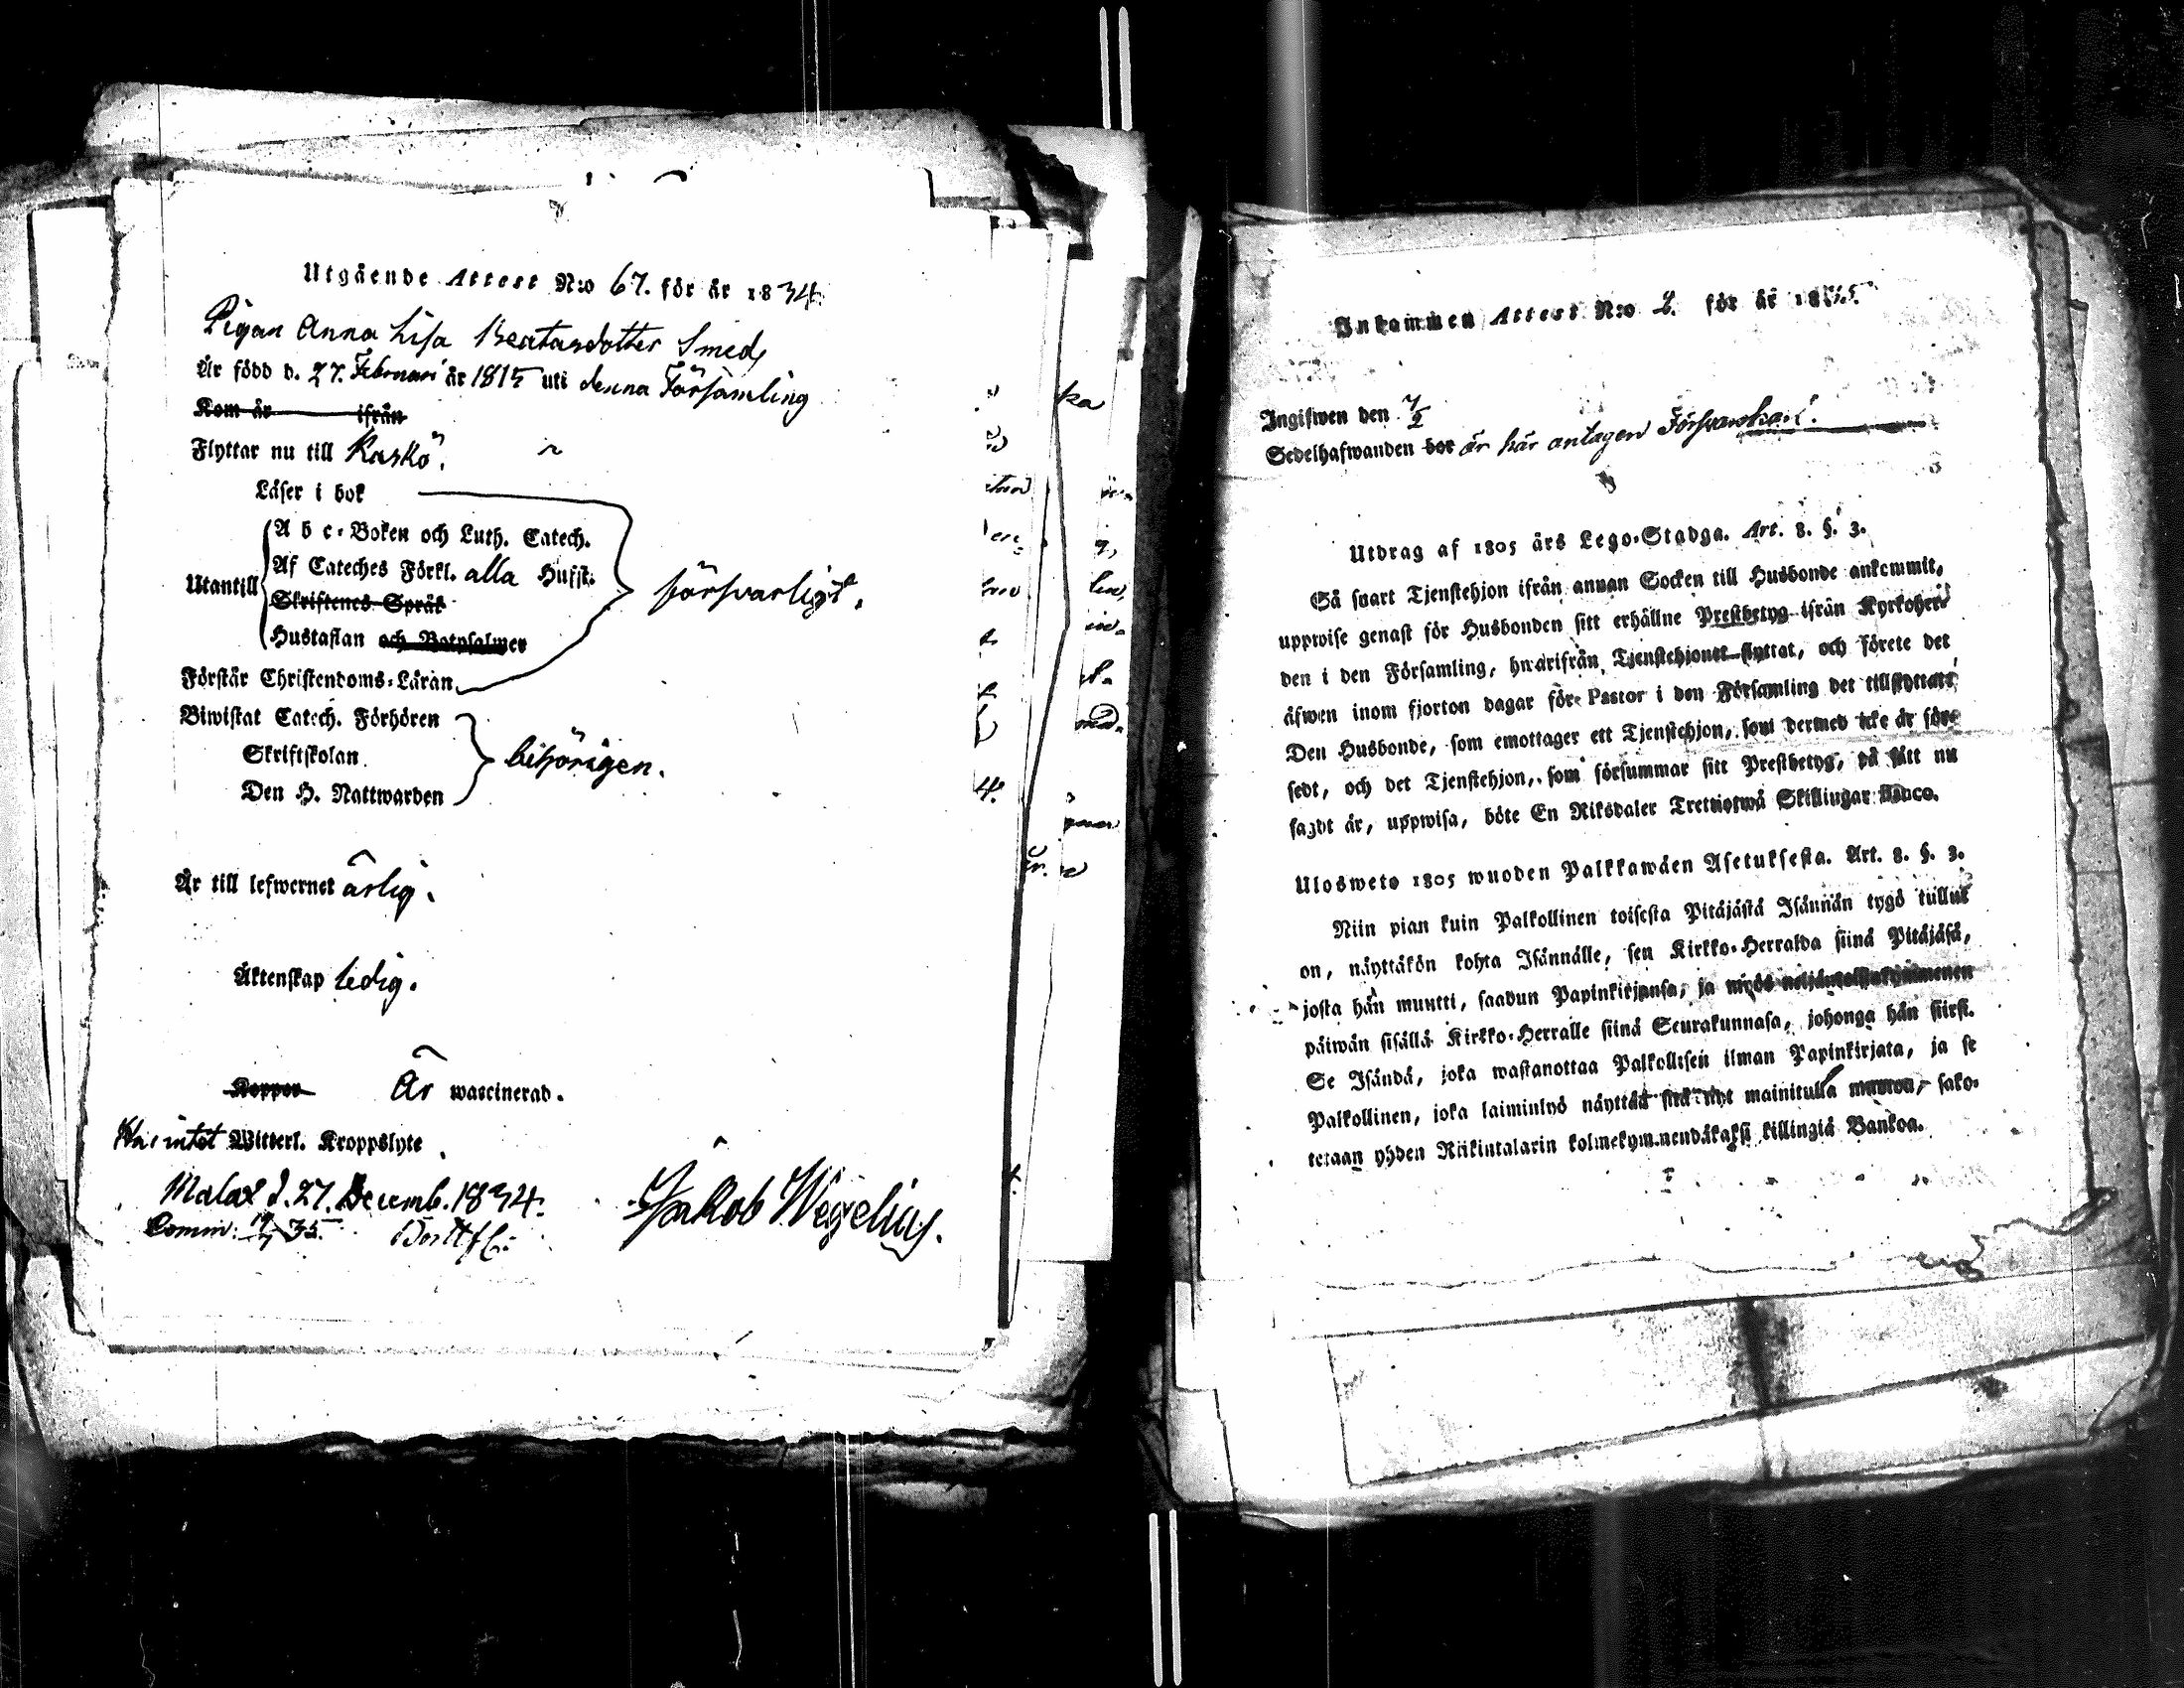 Utgående Attest N:o 67. för år 1834.
Pigan Anna Lisa Beatasdotter Smeds
År född d. 27. Februari år 1815 uti denna Församling
Kom år ifrån
Flyttar nu till Kaskö.
Läser i bok
Utantill
A b c-Boken och Luth. Catech.
Af Cateches Förkl. alla Hufst.
Skriftenes Språk
Hustaflan och Botpsalmer
Förstår Christendoms-Läran
försvarligt.
Biwistat Catech. Förhören
Skriftskolan
Den H. Nattwarden
behörigen.
Är till lefwernet ärlig.
Äktenskap ledig.
Koppor Är waccinerad.
Har intet Witterl. Kroppslyte
Malax d. 27. Decemb. 1834.
Jakob Wegelius.
Comin: 35.
Inkommen Attest N:o 2. för år 1835.
Ingifwen den 7/2
Sedelhafwanden bor är här antagen
Utdrag af 1805 års Lego-Stadga. Art. 8. §. 3.
Så snart Tjenstehjon ifrån annan Socken till Husbonde ankommit,
uppwise genast för Husbonden sitt erhållne Prestbetyg ifrån Kyrkoher-
den i den Församling, hwarifrån Tjenstehjonet flyttat, och förete det
äfwen inom fjorton dagar för Pastor i den Församling det tillflyttat.
Den Husbonde, som emottager ett Tjenstehjon, som dermed icke är för-
sedt, och det Tjenstehjon, som försummar sitt Prestbetyg, på sätt nu
sagdt är, uppwisa, böte En Riksdaler Trettiotwå Skillingar Banco.
Ulosweto 1805 wuoden Palkkawäen Asetuksesta. Art. 8. §. 3.
Niin pian kuin Palkollinen toisesta Pitäjästä Isännän tygö tullut
on, näyttäkön kohta Isännälle, sen Kirkko-Herralda siinä Pitäjäsä,
josta hän muutti, saadun Papinkirjansa, ja myös neljäntoistakymmenen
päiwän sisällä Kirkko-Herralle siinä Seurakunnasa, johonga hän siirst.
Se Isändä, joka wastanottaa Palkollisen ilman Papinkirjata, ja se
Palkollinen, joka laiminlyö näyttää sitä nyt mainitulla muwon, sako-
tetaan yhden Riikintalarin kolmekymmendäkaksi killingiä Bankoa.